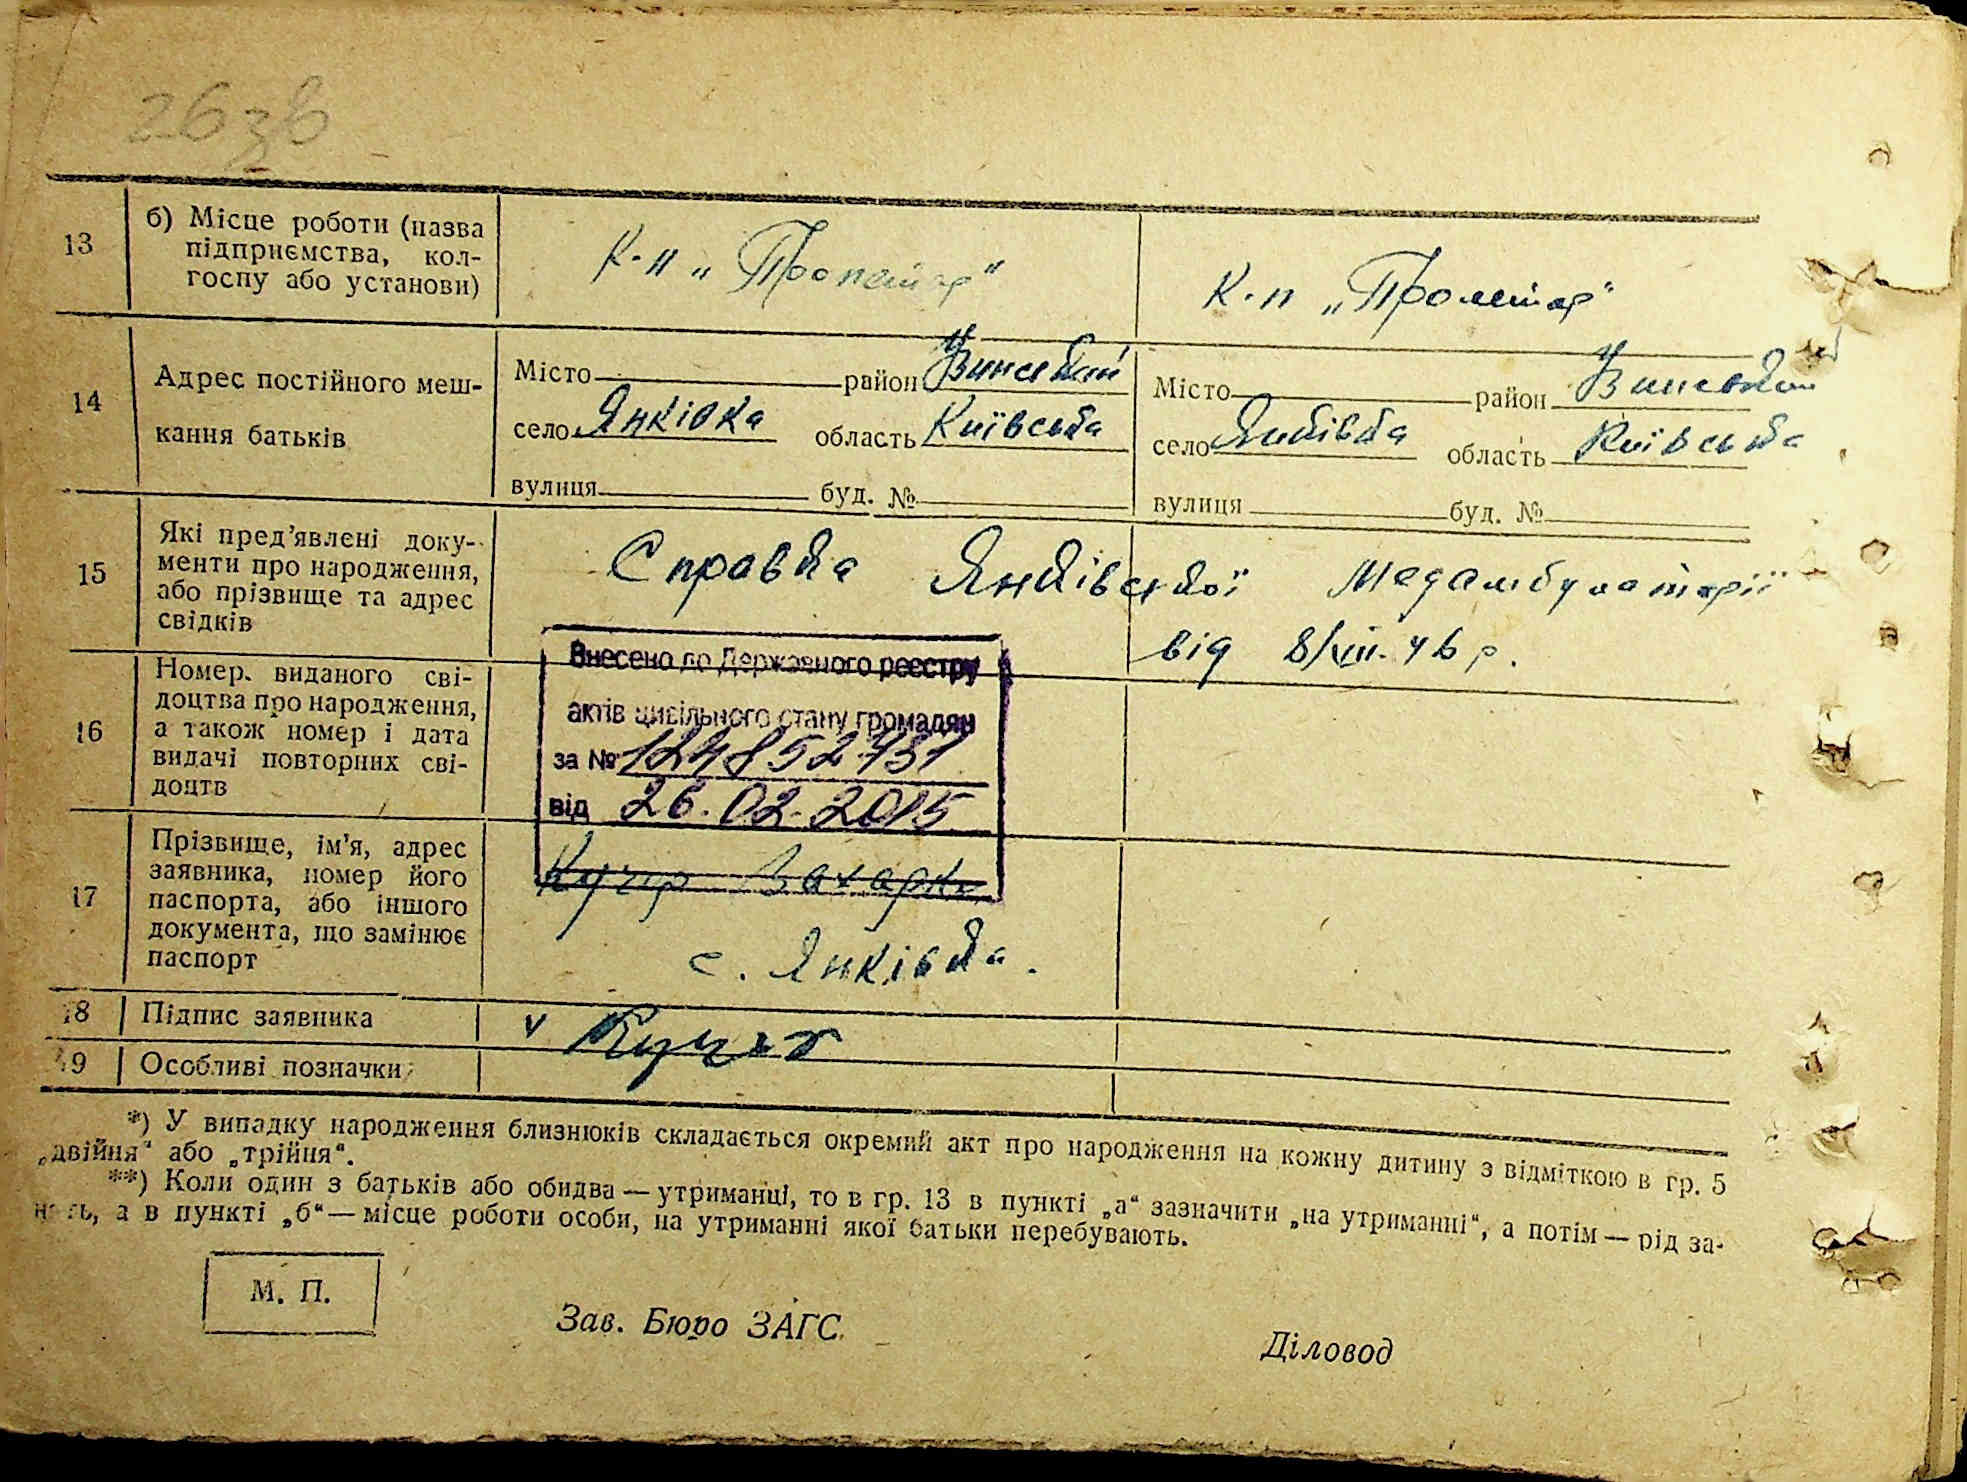 26зв
13
б) Місце роботи (назва
підприємства, кол-
госпу або установи)
К-п „Пролетар"
К-п „Пролетар"
14
Адрес постійного меш-
кання батьків
Місто район
село Янківка область Київська
вулиця буд. №
Місто район
село Янківка область Київська
вулиця буд. №
15
Які пред'явлені доку-
менти про народження,
або прізвище та адрес
свідків
Справка Янківської Медамбулаторії
від 8/VIII-46 р.
16
Номер виданого сві-
доцтва про народження,
а також номер і дата
видачі повторних сві-
доцтв
Внесено до Державного реєстру
актів цивільного стану громадян
за №
від 26.02.2015
17
Прізвище, ім'я, адрес
заявника, номер його
паспорта, або іншого
документа, що замінює
паспорт
с. Янківка.
18
Підпис заявника
v
19
Особливі позначки
*) У випадку народження близнюків складається окремий акт про народження на кожну дитину з відміткою в гр. 5
„двійня" або „трійня".
**) Коли один з батьків або обидва — утриманці, то в гр. 13 в пункті „а" зазначити „на утриманні", а потім — рід за-
нять, а в пункті „б" — місце роботи особи, на утриманні якої батьки перебувають.
М. П.
Зав. Бюро ЗАГС
Діловод